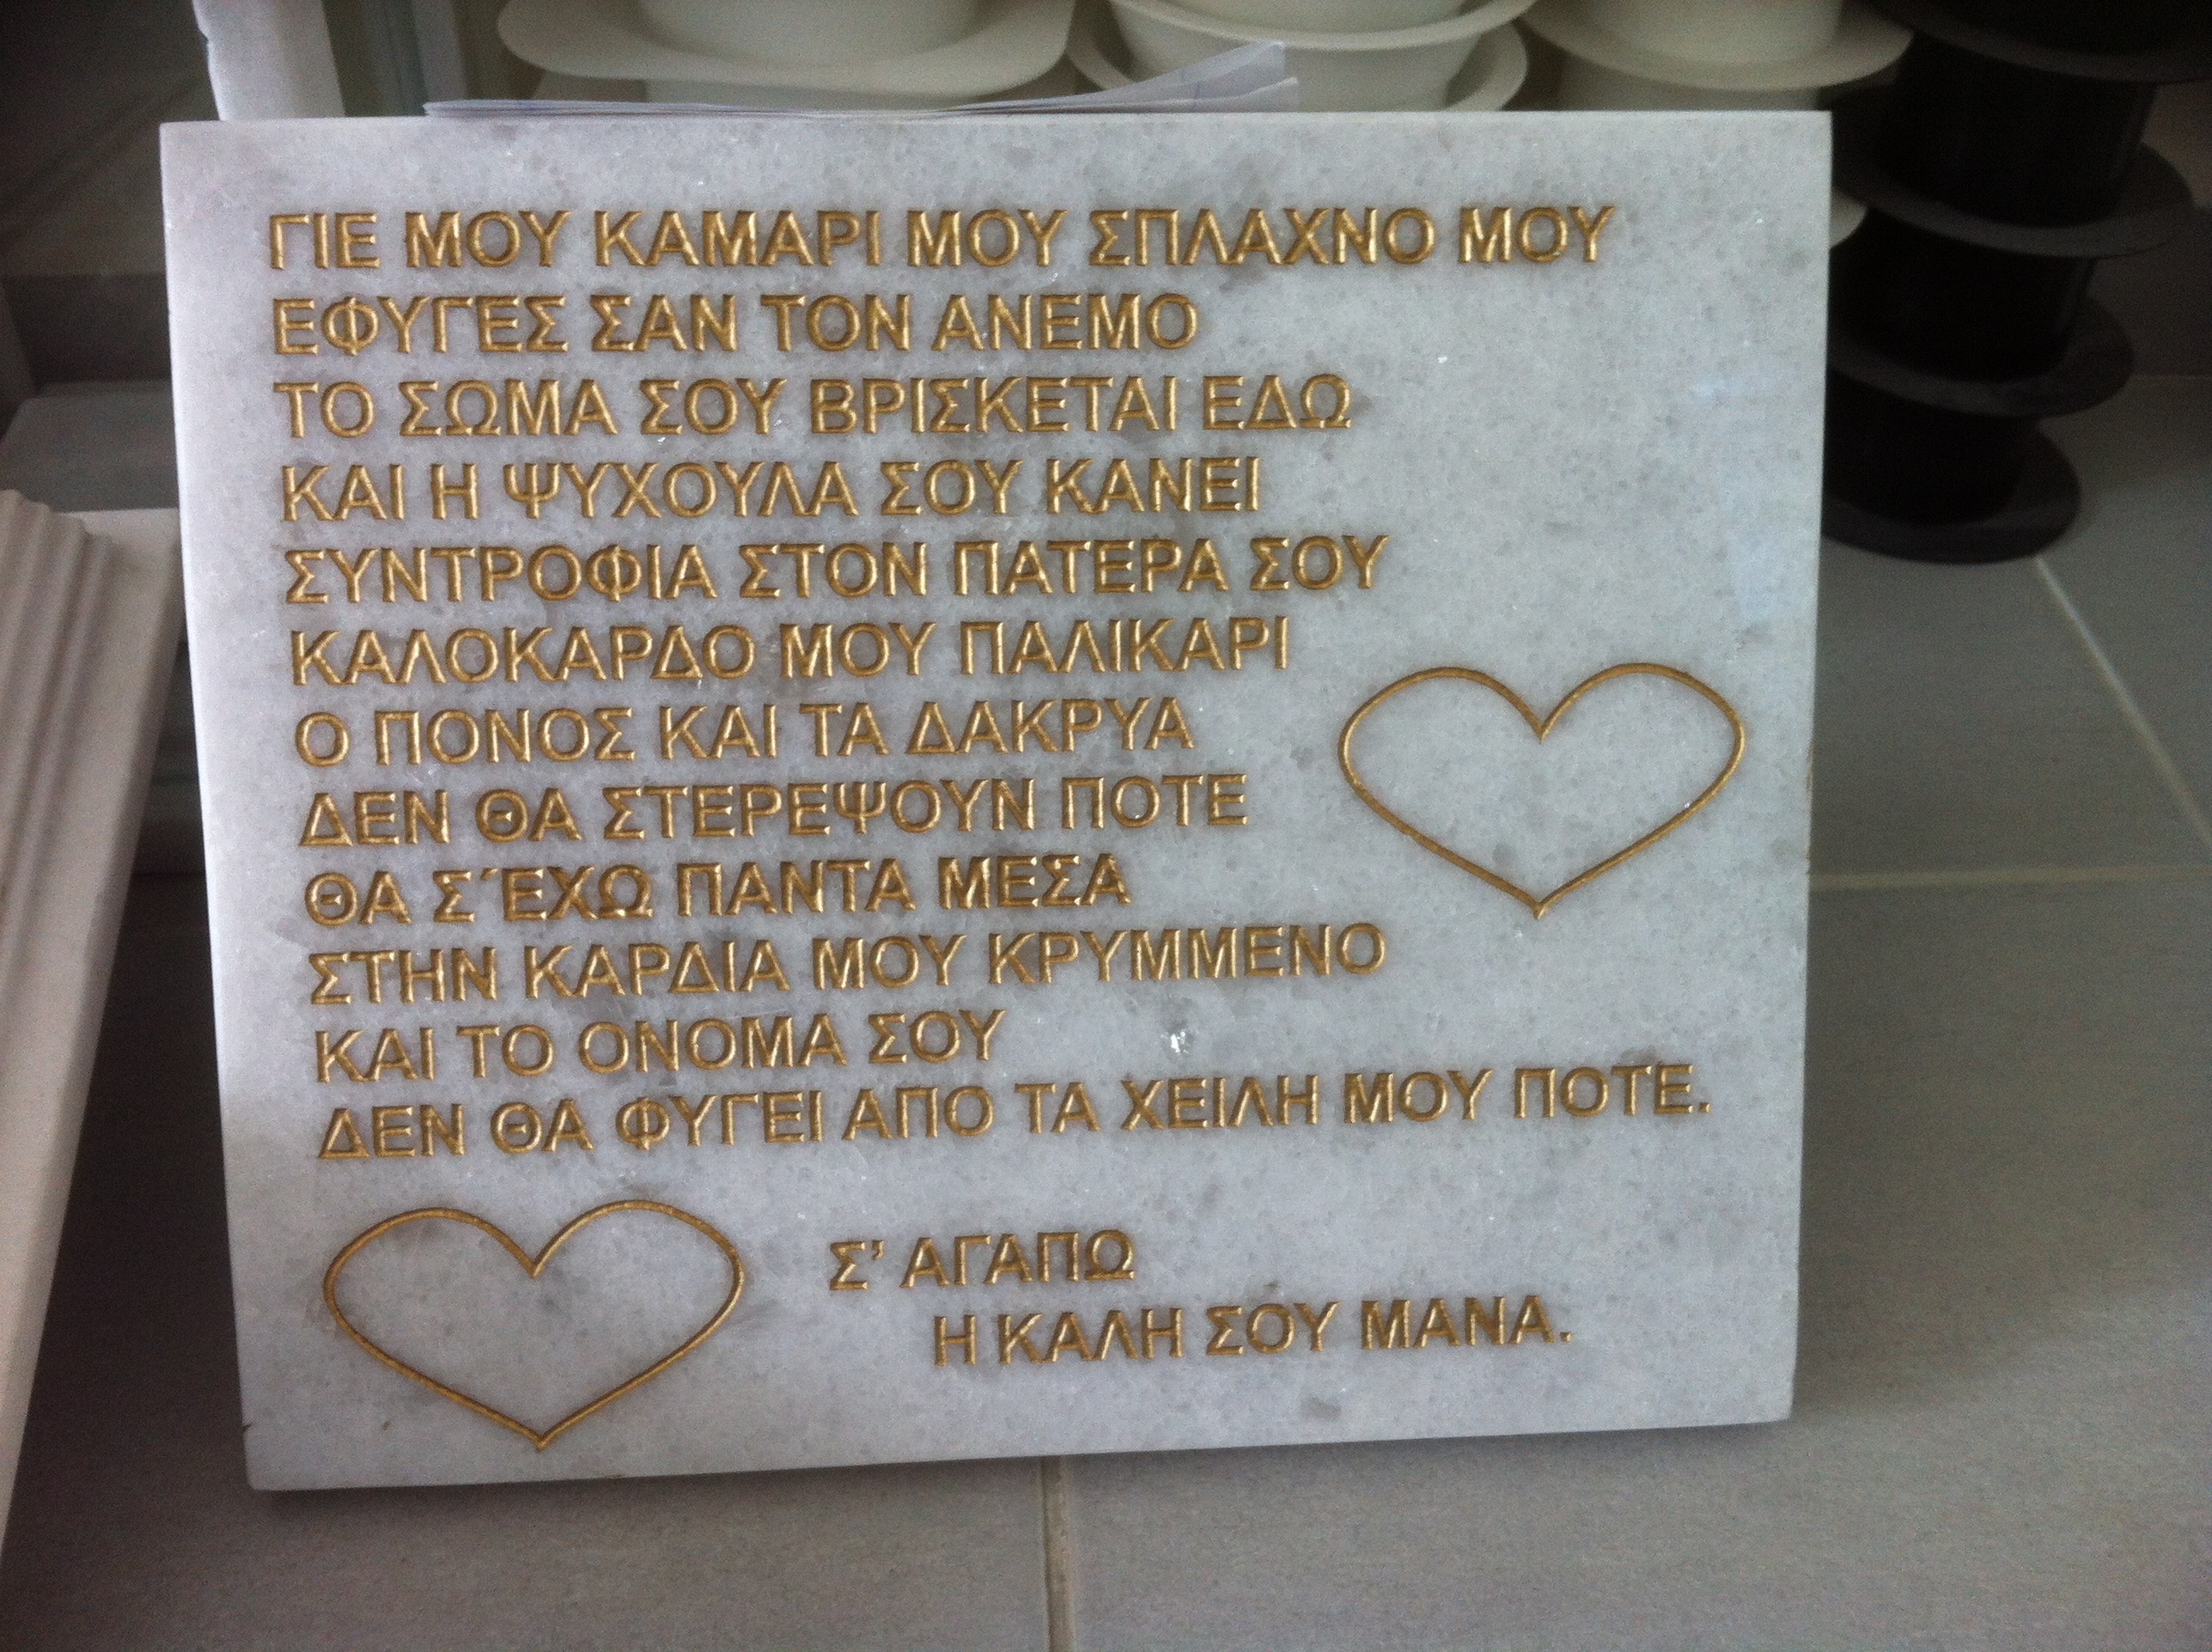 ΓΙΕ ΜΟΥ ΚΑΜΑΡΙ ΜΟΥ ΣΠΛΑΧΝΟ ΜΟΥ
ΕΦΥΓΕΣ ΣΑΝ ΤΟΝ ΑΝΕΜΟ
ΤΟ ΣΩΜΑ ΣΟΥ ΒΡΙΣΚΕΤΑΙ ΕΔΩ
ΚΑΙ Η ΨΥΧΟΥΛΑ ΣΟΥ ΚΑΝΕΙ
ΣΥΝΤΡΟΦΙΑ ΣΤΟΝ ΠΑΤΕΡΑ ΣΟΥ
ΚΑΛΟΚΑΡΔΟ ΜΟΥ ΠΑΛΙΚΑΡΙ
Ο ΠΟΝΟΣ ΚΑΙ ΤΑ ΔΑΚΡΥΑ
ΔΕΝ ΘΑ ΣΤΕΡΕΨΟΥΝ ΠΟΤΕ
ΘΑ Σ΄ΕΧΩ ΠΑΝΤΑ ΜΕΣΑ
ΣΤΗΝ ΚΑΡΔΙΑ ΜΟΥ ΚΡΥΜΜΕΝΟ
ΚΑΙ ΤΟ ΟΝΟΜΑ ΣΟΥ
ΔΕΝ ΘΑ ΦΥΓΕΙ ΑΠΟ ΤΑ ΧΕΙΛΗ ΜΟΥ ΠΟΤΕ.
Σ' ΑΓΑΠΩ
Η ΚΑΛΗ ΣΟΥ ΜΑΝΑ.